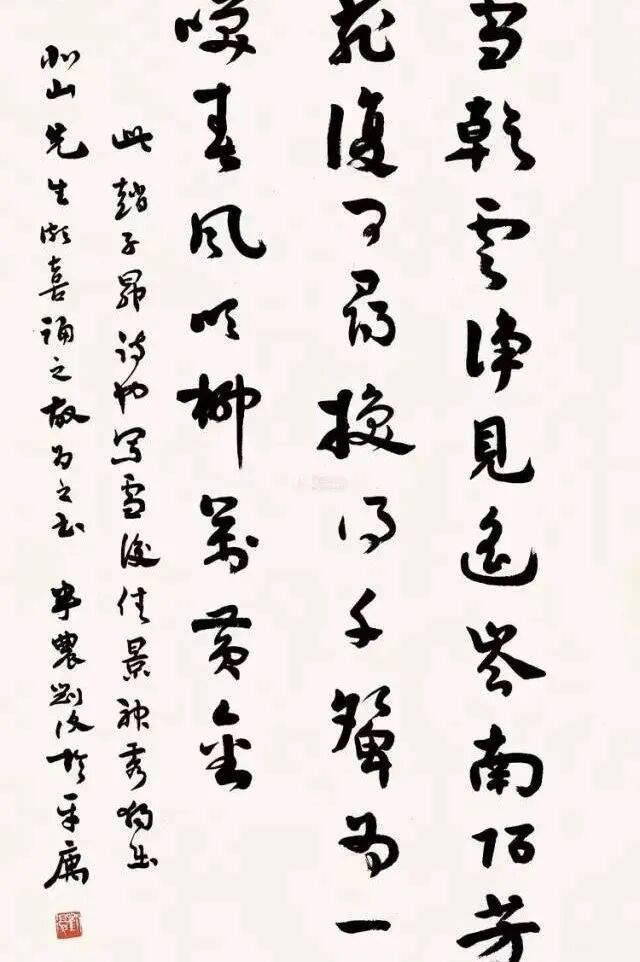 雪乾雲淨見遙岑南陌芳
菲復可尋換得千顰為一
咲春風吹柳萬黃金
此趙子昂詩也寫雪後佳景神秀獨出
山先生頗喜誦之故為之書 半農劉復於平寓